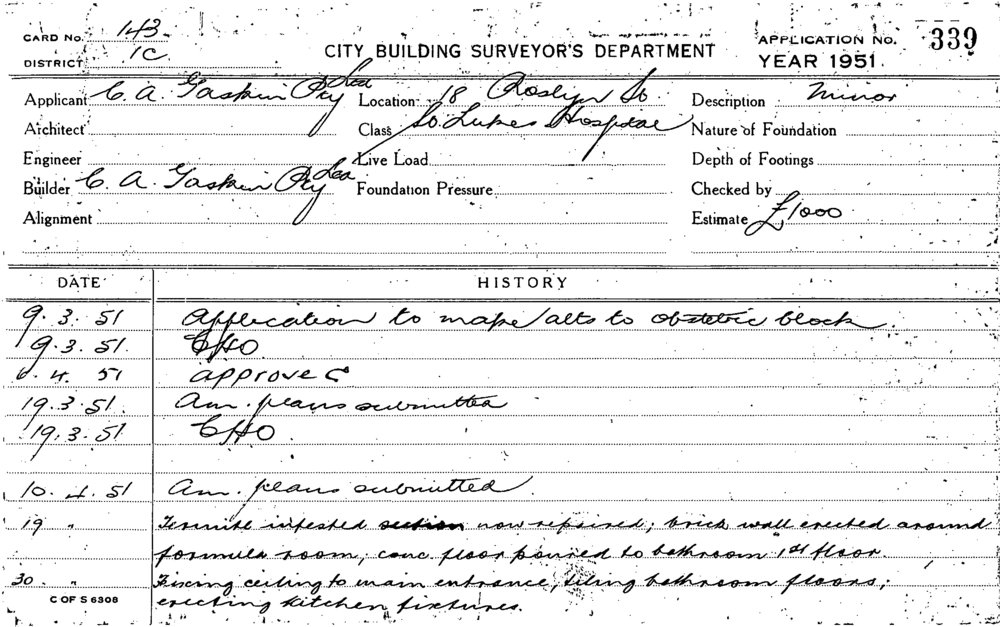 CARD No. 143
DISTRICT 1C
CITY BUILDING SURVEYOR'S DEPARTMENT
APPLICATION No. 339
YEAR 1951.
Applicant C. A. Gaskin Pty Ltd
Location 18 Roslyn St
Description Minor
Architect
Class St. Lukes Hospital
Nature of Foundation
Engineer
Live Load
Depth of Footings
Builder C. A. Gaskin Pty Ltd
Foundation Pressure
Checked by
Alignment
Estimate £1000
DATE HISTORY
9. 3. 51 Application to make alts to obstetric block.
9. 3. 51. CHO
4. 51 approved
19. 3. 51. Am. plans submitted
19. 3. 51 CHO.
10. 4. 51 Am. plans submitted.
19 " Termite infested section now repaired; brick wall erected around
formula room; conc. floor poured to bathroom 1st floor.
30 " Fixing ceiling to main entrance, tiling bathroom floors;
erecting kitchen fixtures.
C OF S 6308